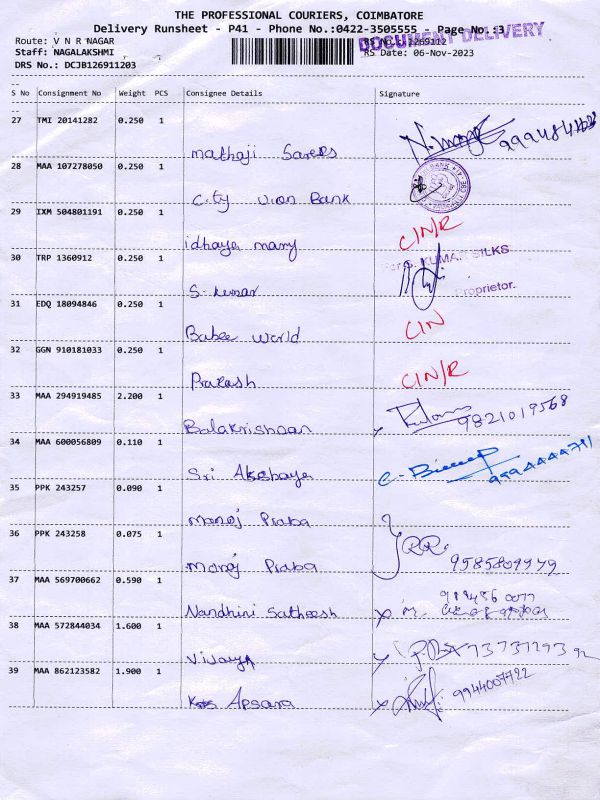 THE PROFESSIONAL COURIERS, COIMBATORE
Delivery Runsheet - P41 - Phone No.:0422-3505555 - Page No.:3
DOCUMENT DELIVERY
Route: V N R NAGAR
RS No.: 1269112
Staff: NAGALAKSHMI
RS Date: 06-Nov-2023
DRS No.: DCJB126911203
S No Consignment No Weight PCS Consignee Details Signature
27 TMI 20141282 0.250 1
mathaji Sarees
28 MAA 107278050 0.250 1
City Union Bank
29 IXM 504801191 0.250 1 CIN/R
idhaya mary
30 TRP 1360912 0.250 1 For S. KUMAR SILKS
S. kumar Proprietor.
31 EDQ 18094846 0.250 1 CIN
Babee World
32 GGN 910181033 0.250 1 CIN/R
Prakash
33 MAA 294919485 2.200 1 9821019568
Balakrishnan
34 MAA 600056809 0.110 1
Sri Akshaya 9994444711
35 PPK 243257 0.090 1
Manoj Praba
36 PPK 243258 0.075 1
Manoj Praba 9585809979
37 MAA 569700662 0.590 1
Nandhini Satheesh
38 MAA 572844034 1.600 1
Vijaya
39 MAA 862123582 1.900 1 9944007722
Apsara